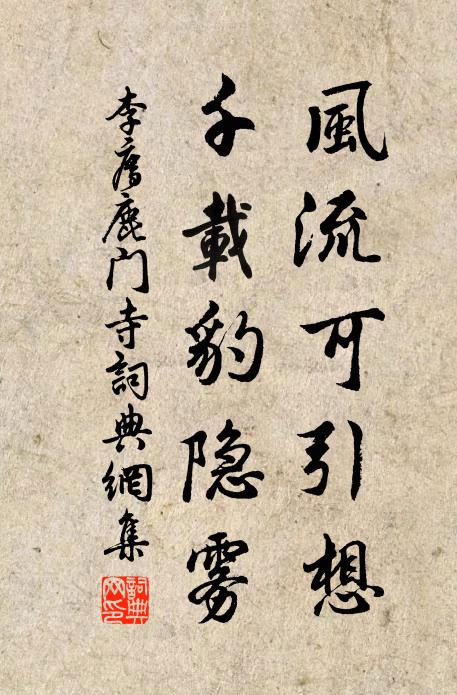 風流可引想
千載豹隐雾
李廌鹿门寺詞典網集
詞典网印